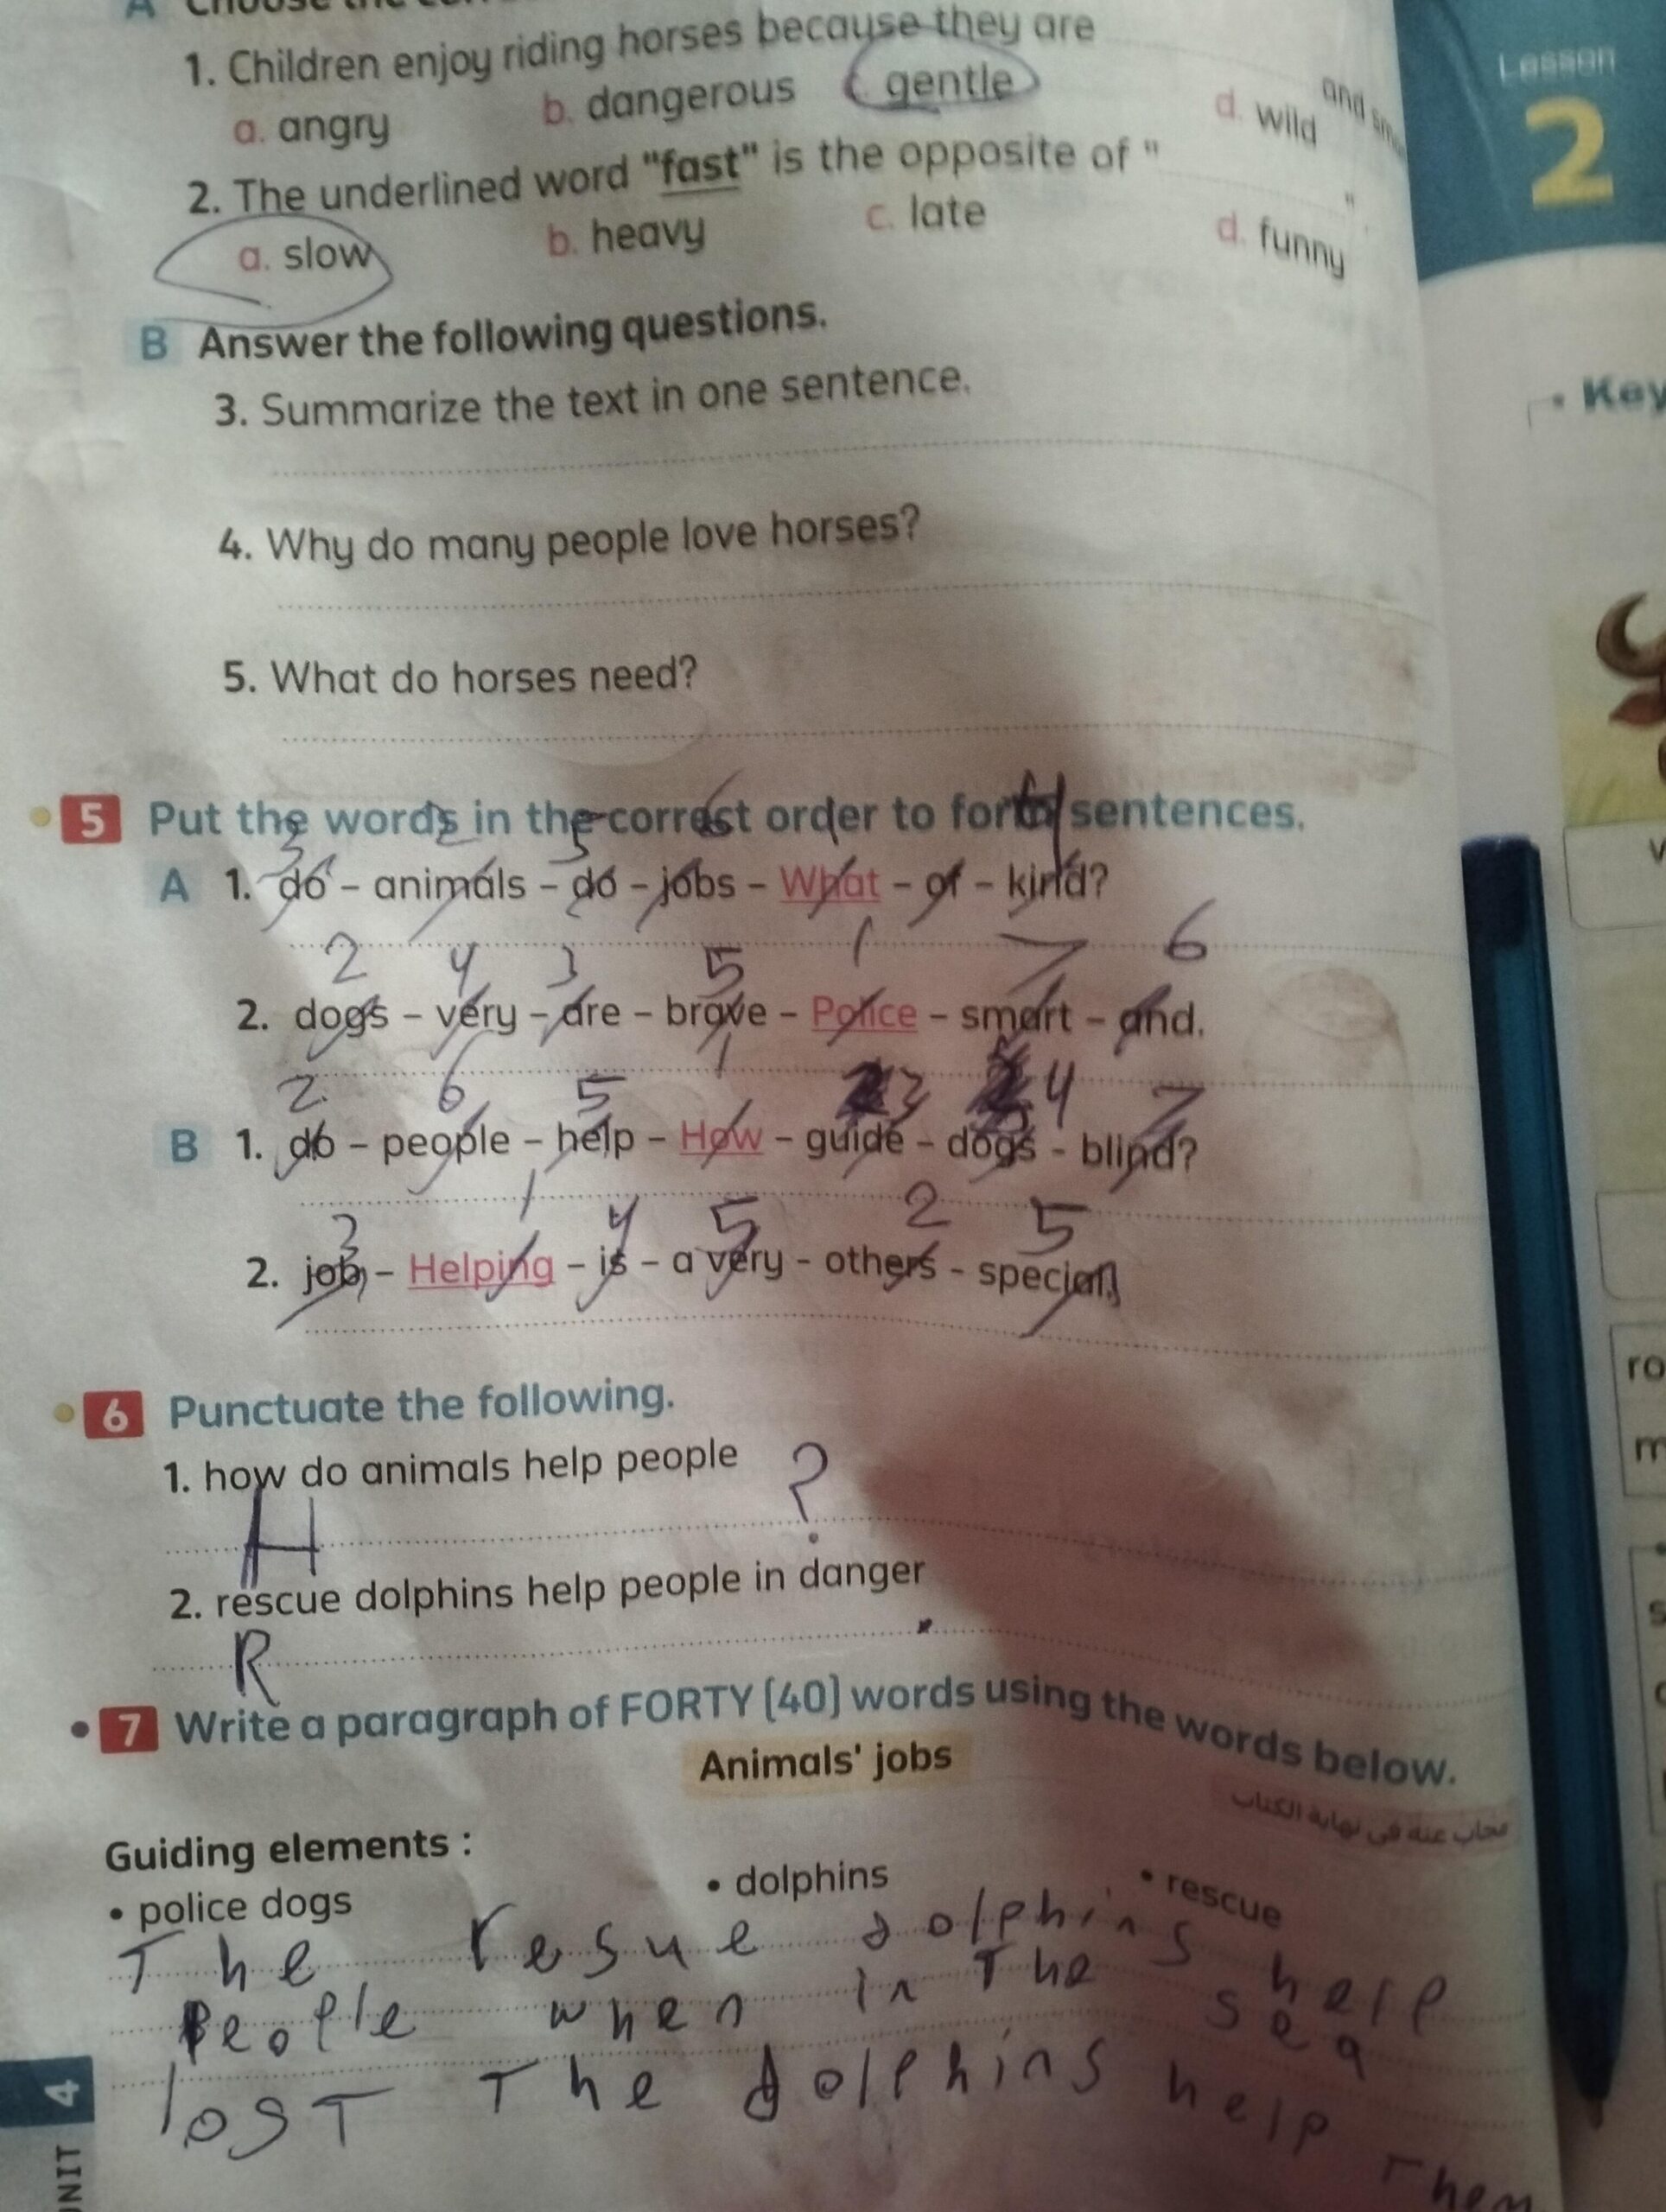 A
1. Children enjoy riding horses because they are
and
a. angry b. dangerous c. gentle d. wild
2. The underlined word "fast" is the opposite of " ".
a. slow b. heavy c. late d. funny
B Answer the following questions.
3. Summarize the text in one sentence.
4. Why do many people love horses?
5. What do horses need?
5 Put the words in the correct order to form sentences.
3 2 5 6 1 4
A 1. do – animals – do – jobs – What – of – kind?
2 4 3 5 1 7 6
2. dogs – very – are – brave – Police – smart – and.
2 6 5 1 3 4 7
B 1. do – people – help – How – guide – dogs - blind?
3 1 4 5 2 5
2. job – Helping – is – a very - others - special.
6 Punctuate the following.
1. how do animals help people
H ?
2. rescue dolphins help people in danger
R .
7 Write a paragraph of FORTY (40) words using the words below.
Animals' jobs
مجاب عنه فى نهاية الكتاب
Guiding elements :
• police dogs • dolphins • rescue
The resue dolphins help
People when in The sea
lost The dolphins help Them
UNIT 4
Lesson
2
• Key
ro